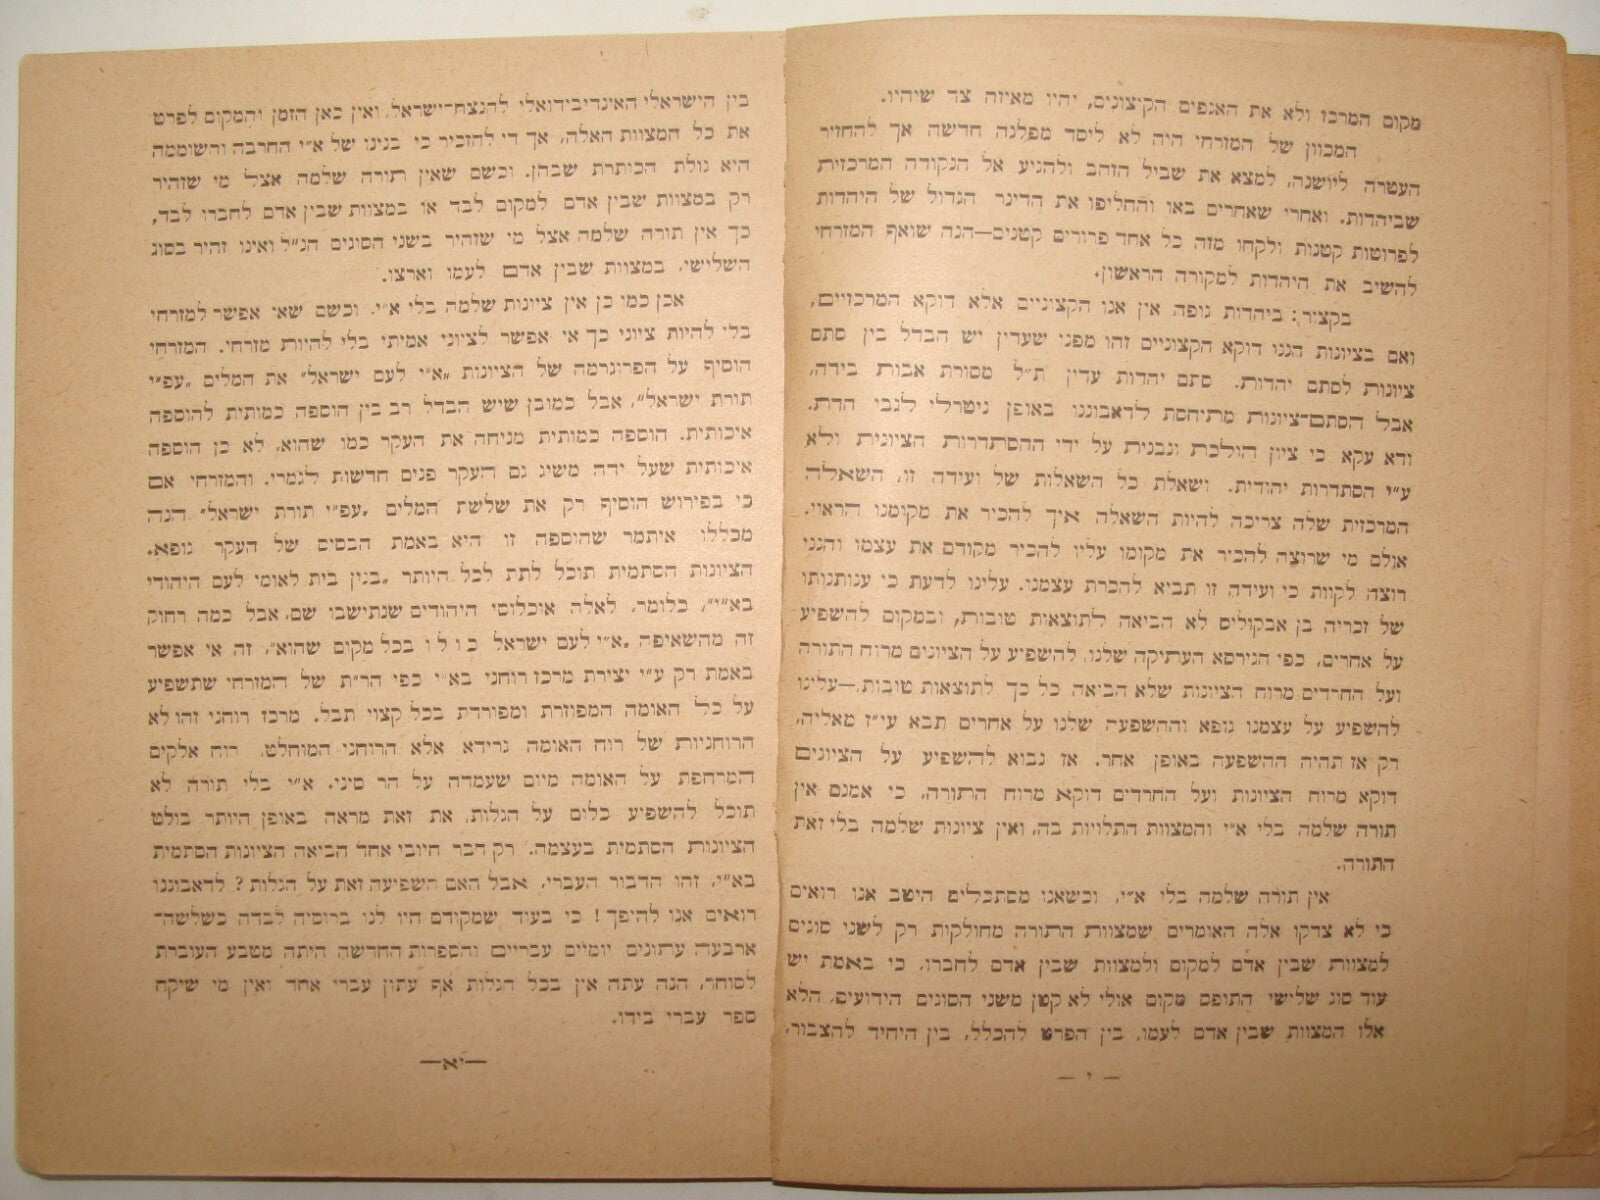 מקום המרכז ולא את האגפים הקיצונים, יהיו מאיזה צד שיהיו.
המכוון של המזרחי היה לא ליסד מפלגה חדשה אך להחזיר
העטרה ליושנה, למצא את שביל הזהב ולהגיע אל הנקודה המרכזית
שביהדות. ואחרי שאחרים באו והחליפו את הדינר הגדול של היהדות
לפרוטות קטנות ולקחו מזה כל אחד פרורים קטנים—הנה שואף המזרחי
להשיב את היהדות למקורה הראשון.
בקציר: ביהדות גופה אין אנו הקצוניים אלא דוקא המרכזיים,
ואם בציונות הננו דוקא הקצוניים זהו מפני שעדין יש הבדל בין סתם
ציונות לסתם יהדות. סתם יהדות עדין ת״ל מסורת אבות בידה,
אבל הסתם־ציונות מתיחסת לדאבוננו באופן ניטרלי לגבי הדת.
ודא עקא כי ציון הולכת ונבנית על ידי ההסתדרות הציונית ולא
ע״י הסתדרות יהודית. ושאלת כל השאלות של ועידה זו, השאלה
המרכזית שלה צריכה להיות השאלה איך להכיר את מקומנו הראוי.
אולם מי שרוצה להכיר את מקומו עליו להכיר מקודם את עצמו והנני
רוצה לקוות כי ועידה זו תביא להכרת עצמנו. עלינו לדעת כי ענותנותו
של זכריה בן אבקוליס לא הביאה לתוצאות טובות, ובמקום להשפיע
על אחרים, כפי הגירסא העתיקה שלנו, להשפיע על הציונים מרוח התורה
ועל החרדים מרוח הציונות שלא הביאה כל כך לתוצאות טובות,—עלינו
להשפיע על עצמנו גופא וההשפעה שלנו על אחרים תבא עי״ז מאליה,
רק אז תהיה ההשפעה באופן אחר. אז נבוא להשפיע על הציונים
דוקא מרוח הציונות ועל החרדים דוקא מרוח התורה, כי אמנם אין
תורה שלמה בלי א״י והמצוות התלויות בה, ואין ציונות שלמה בלי זאת
התורה.
אין תורה שלמה בלי א״י, וכשאנו מסתכלים היטב אנו רואים
כי לא צדקו אלה האומרים שמצוות התורה מחולקות רק לשני סוגים
למצוות שבין אדם למקום ולמצוות שבין אדם לחברו, כי באמת יש
עוד סוג שלישי התופס מקום אולי לא קטן משני הסוגים הידועים, הלא
אלו המצוות שבין אדם לעמו, בין הפרט להכלל, בין היחיד להצבור,
— י —
בין הישראלי האינדיבידואלי להנצח־ישראל, ואין כאן הזמן והמקום לפרט
את כל המצוות האלה, אך די להזכיר כי בנינו של א״י החרבה והשוממה
היא גולת הכותרת שבהן. וכשם שאין תורה שלמה אצל מי שזהיר
רק במצוות שבין אדם למקום לבד או במצוות שבין אדם לחברו לבד,
כך אין תורה שלמה אצל מי שזהיר בשני הסוגים הנ״ל ואינו זהיר בסוג
השלישי, במצוות שבין אדם לעמו וארצו.
אכן כמו כן אין ציונות שלמה בלי א״י. וכשם שאי אפשר למזרחי
בלי להיות ציוני כך אי אפשר לציוני אמיתי בלי להיות מזרחי. המזרחי
הוסיף על הפרוגרמה של הציונות „א״י לעם ישראל״ את המלים „עפ״י
תורת ישראל״, אבל כמובן שיש הבדל רב בין הוספה כמותית להוספה
איכותית. הוספה כמותית מניחה את העקר כמו שהוא, לא כן הוספה
איכותית שעל ידה משיג גם העקר פנים חדשות לגמרי. והמזרחי אם
כי בפירוש הוסיף רק את שלשת המלים „עפ״י תורת ישראל״ הנה
מכללו איתמר שהוספה זו היא באמת הבסיס של העקר גופא.
הציונות הסתמית תוכל לתת לכל היותר „בנין בית לאומי לעם היהודי
בא״י״, כלומר, לאלה איכלוסי היהודים שנתישבו שם, אבל כמה רחוק
זה מהשאיפה „א״י לעם ישראל כ ו ל ו בכל מקום שהוא״, זה אי אפשר
באמת רק ע״י יצירת מרכז רוחני בא״י כפי הר״ת של המזרחי שתשפיע
על כל האומה המפוזרת ומפורדת בכל קצוי תבל. מרכז רוחני זהו לא
הרוחניות של רוח האומה גרידא אלא הרוחני המוחלט, רוח אלקים
המרחפת על האומה מיום שעמדה על הר סיני. א״י בלי תורה לא
תוכל להשפיע כלום על הגלות, את זאת מראה באופן היותר בולט
הציונות הסתמית בעצמה. רק דבר חיובי אחד הביאה הציונות הסתמית
בא״י, זהו הדבור העברי, אבל האם השפיעה זאת על הגלות? לדאבוננו
רואים אנו להיפך! כי בעוד שמקודם היו לנו ברוסיה לבדה כשלשה־
ארבעה עתונים יומיים עבריים והספרות החדשה היתה מטבע העוברת
לסוחר, הנה עתה אין בכל הגלות אף עתון עברי אחד ואין מי שיקח
ספר עברי בידו.
—יא—